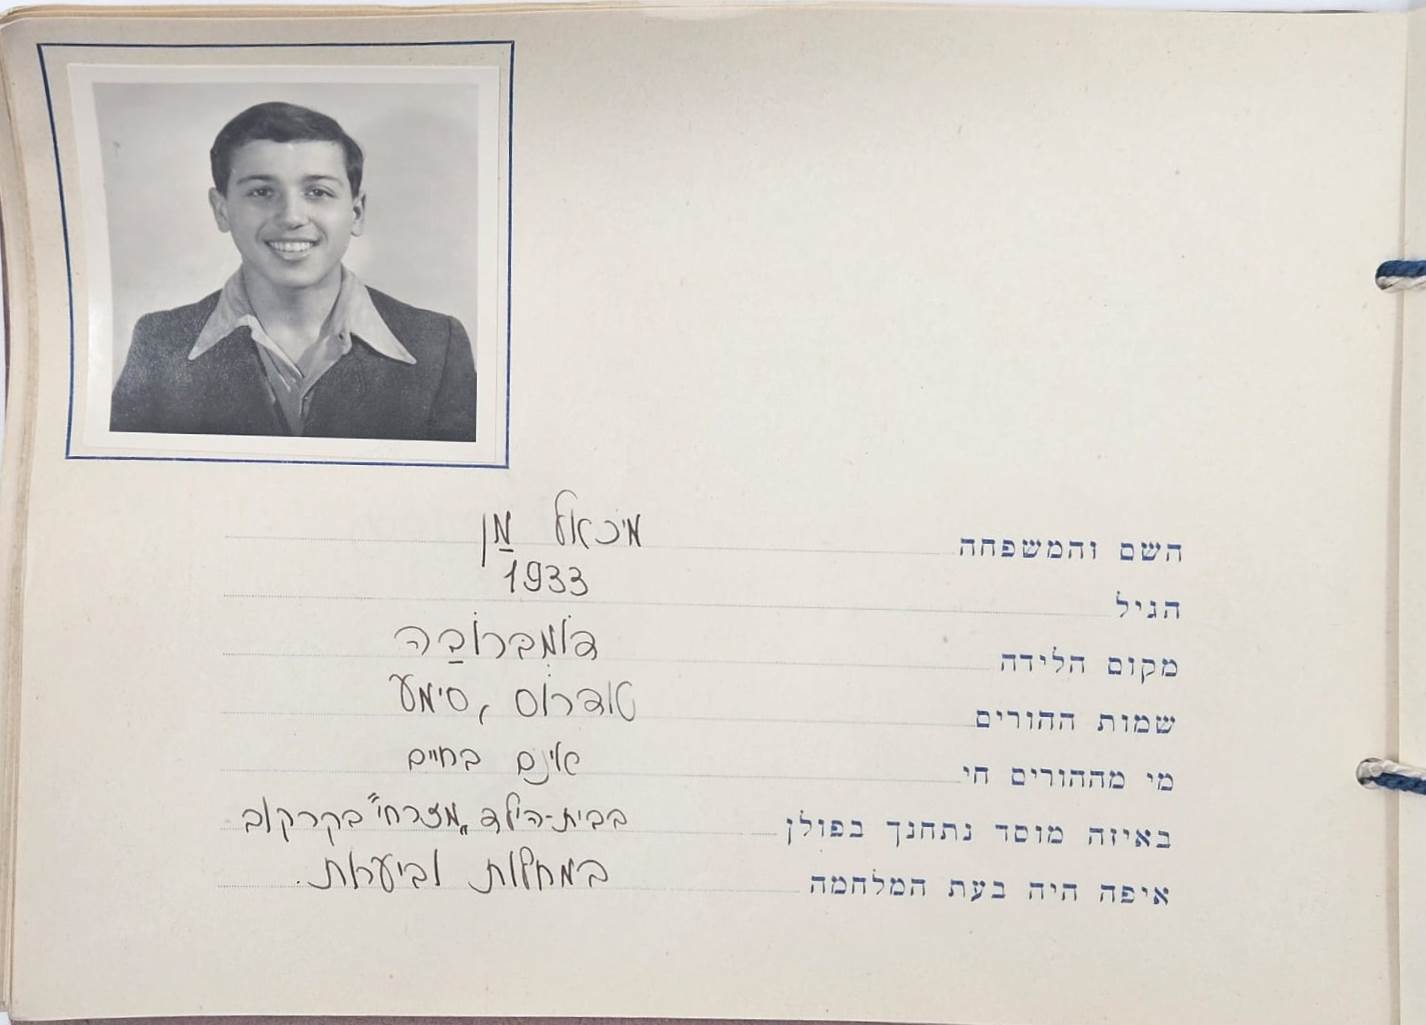 השם והמשפחה מיכאל מַן
הגיל 1933
מקום הלידה דוֹמְבְּרוֹבַה
שמות ההורים טודרוֹס, סימע
מי מההורים חי אינם בחיים
באיזה מוסד נתחנך בפולן בבית-הילד „מזרחי״ בקרקוב
איפה היה בעת המלחמה במחילות וביערות.